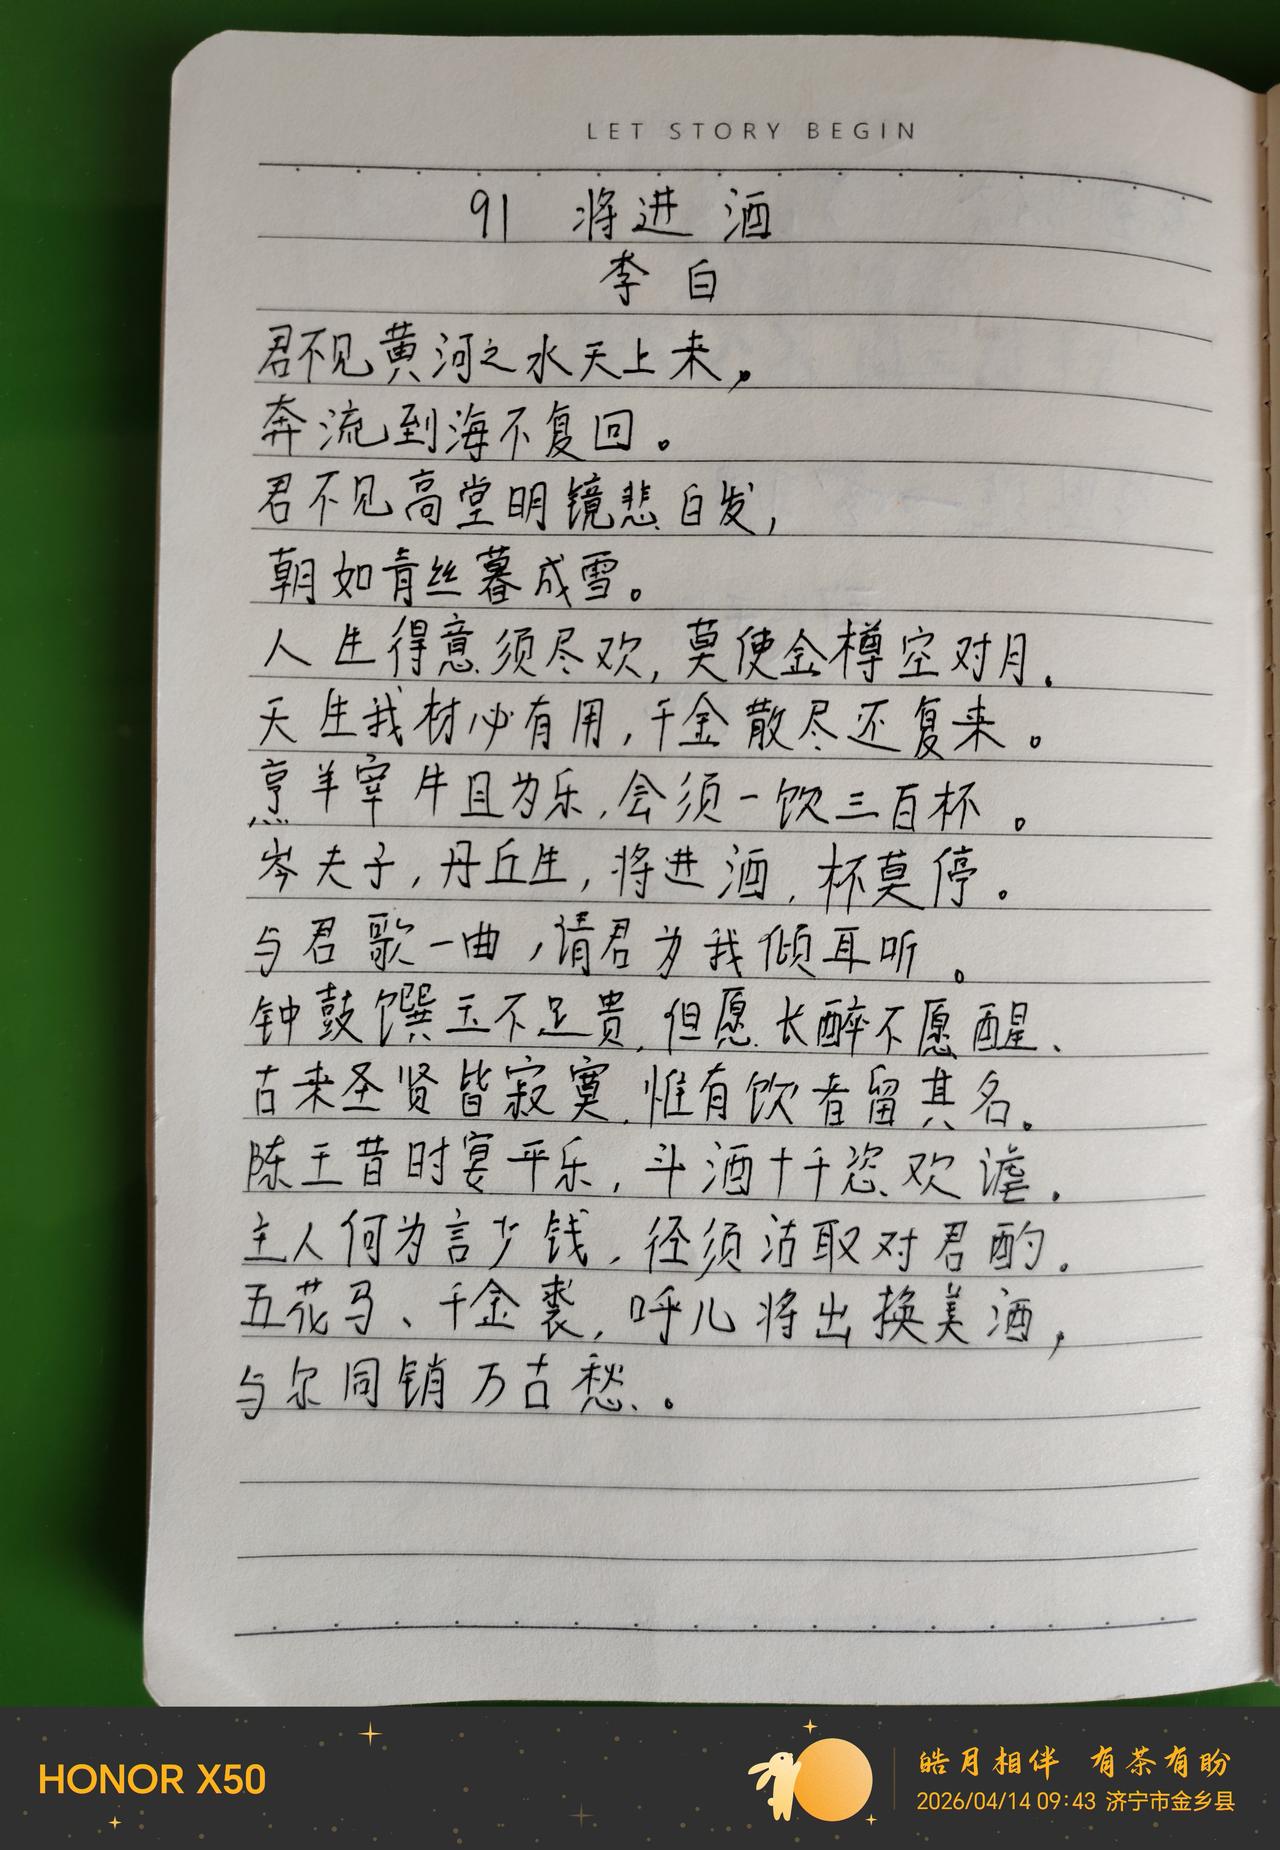 LET STORY BEGIN
91 将进酒
李白
君不见黄河之水天上来,
奔流到海不复回。
君不见高堂明镜悲白发,
朝如青丝暮成雪。
人生得意须尽欢,莫使金樽空对月.
天生我材必有用,千金散尽还复来。
烹羊宰牛且为乐,会须一饮三百杯。
岑夫子,丹丘生,将进酒,杯莫停。
与君歌一曲,请君为我倾耳听。
钟鼓馔玉不足贵,但愿长醉不愿醒、
古来圣贤皆寂寞,惟有饮者留其名。
陈王昔时宴平乐,斗酒十千恣欢谑.
主人何为言少钱,径须沽取对君酌.
五花马、千金裘,呼儿将出换美酒,
与尔同销万古愁。
HONOR X50
皓月相伴 有茶有盼
2026/04/14 09:43 济宁市金乡县